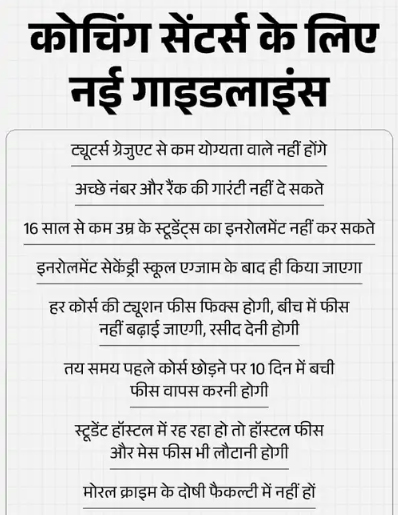 कोचिंग सेंटर्स के लिए
नई गाइडलाइंस
ट्यूटर्स ग्रेजुएट से कम योग्यता वाले नहीं होंगे
अच्छे नंबर और रैंक की गारंटी नहीं दे सकते
16 साल से कम उम्र के स्टूडेंट्स का इनरोलमेंट नहीं कर सकते
इनरोलमेंट सेकेंड्री स्कूल एग्जाम के बाद ही किया जाएगा
हर कोर्स की ट्यूशन फीस फिक्स होगी, बीच में फीस
नहीं बढ़ाई जाएगी, रसीद देनी होगी
तय समय पहले कोर्स छोड़ने पर 10 दिन में बची
फीस वापस करनी होगी
स्टूडेंट हॉस्टल में रह रहा हो तो हॉस्टल फीस
और मेस फीस भी लौटानी होगी
मोरल क्राइम के दोषी फैकल्टी में नहीं हों